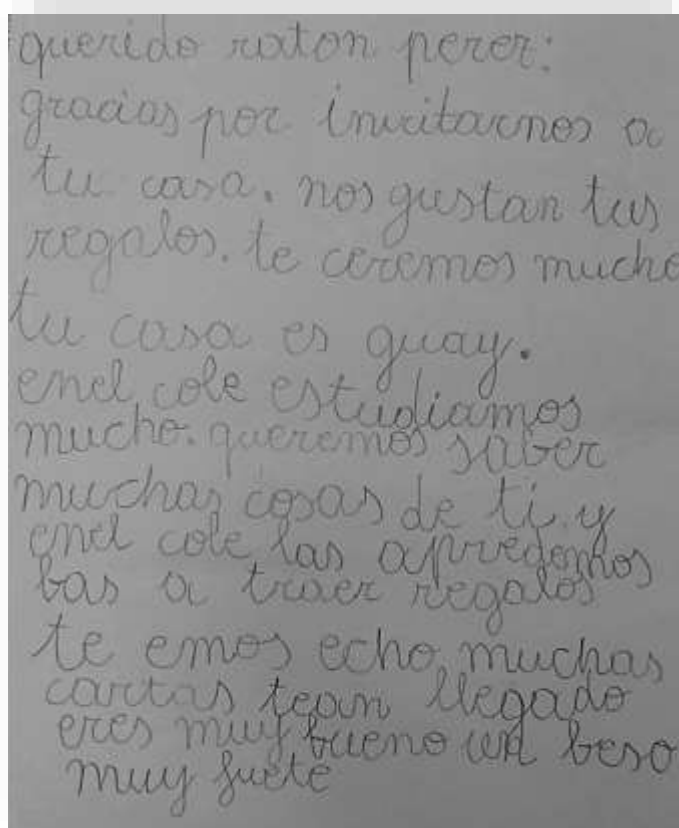 querido raton perez:
gracias por invitarnos a
tu casa. nos gustan tus
regalos. te ceremos mucho
tu casa es guay.
enel cole estudiamos
mucho. queremos saber
muchas cosas de ti. y
enel cole las apredemos
bas a traer regalos
te emos echo muchas
cartas tean llegado
eres muy bueno un beso
muy fuete